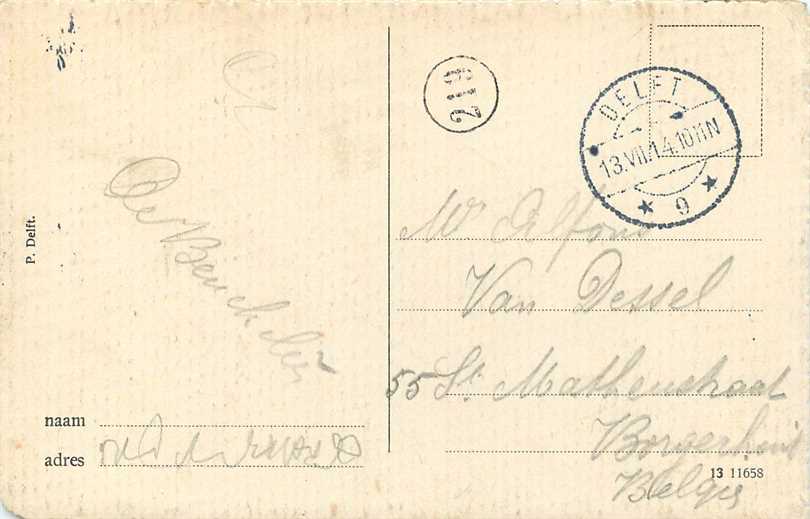 P. Delft.
De Beuckelaer
naam
adres
219
DELFT
13.VII.14.10-11N
9
Mr Alfons
Van Dessel
55 St. Matheustraat
Borgerhout
België
13 11658